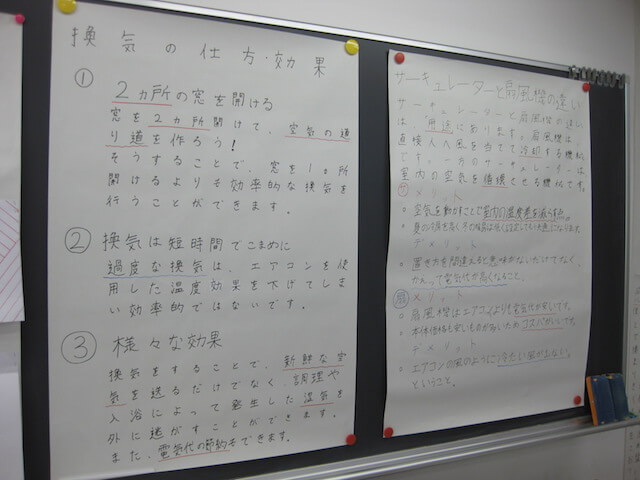 換気の仕方・効果
①
2ヵ所の窓を開ける
窓を2ヵ所開けて、空気の通
り道を作ろう!
そうすることで、窓を1ヶ所
開けるよりも効率的な換気を
行うことができます。
② 換気は短時間でこまめに
過度な換気は、エアコンを使
用した温度効果を下げてしま
い効率的ではないです。
③ 様々な効果
換気をすることで、新鮮な空
気を送るだけでなく、調理や
入浴によって発生した湿気を
外に逃がすことができます。
また、電気代の節約もできます。
サーキュレーターと扇風機の違い
サーキュレーターと扇風機の違い
は、用途にあります。扇風機は、
直接人へ風を当てて冷却する機械
です。一方のサーキュレーターは、
室内の空気を循環させる機械です。
サ メリット
○ 空気を動かすことで室内の温度差を減らす
デメリット
○ 置き方を間違えると意味がないだけでなく、
かえって電気代が高くなること。
扇 メリット
○ 扇風機はエアコンよりも電気代が安いです。
○ 本体価格も安いものが多いためコスパがいいです。
デメリット
○ エアコンの風のように冷たい風が出ない。
ということ。